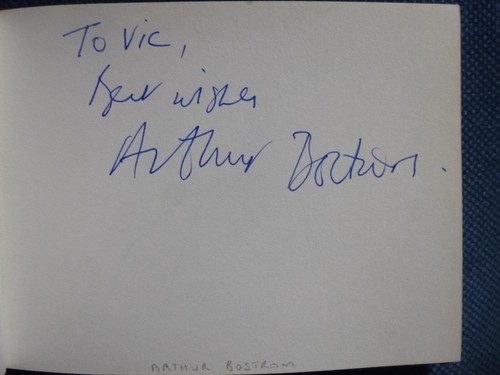 To Vic,
Best wishes
Arthur Bostrom.
ARTHUR BOSTROM